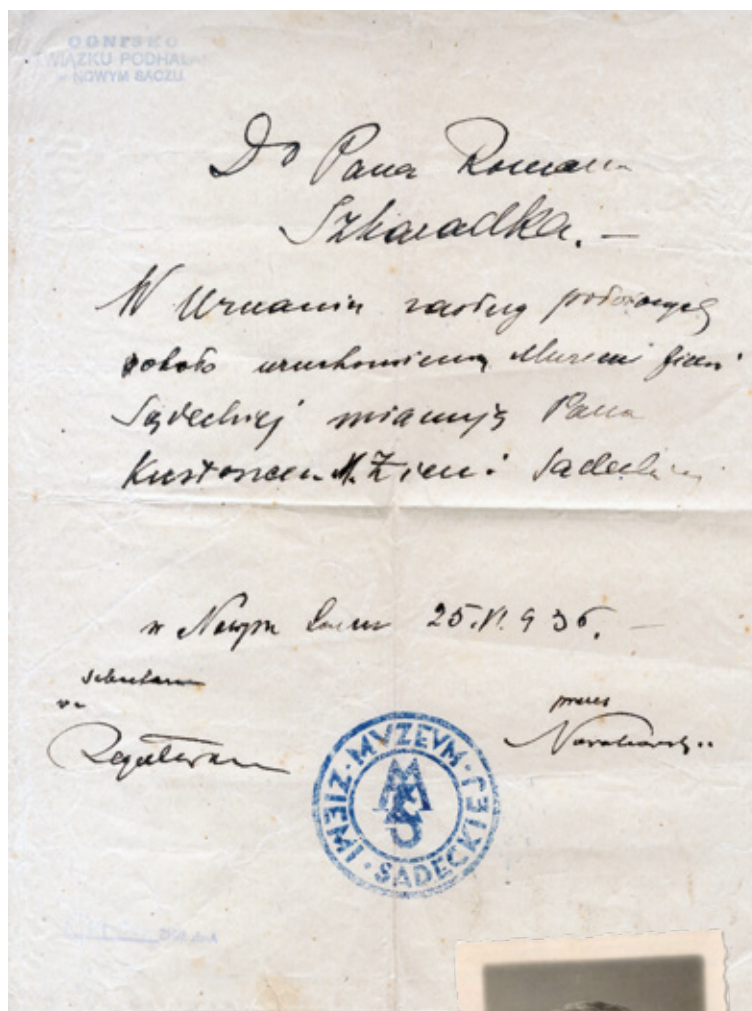 OGNISKO
ZWIĄZKU PODHALAN
w NOWYM SĄCZU
Do Pana Romana
Szkaradka. —
W Uznaniu zasług położonych
około uruchomienia Muzeum Ziemi
Sądeckiej mianuję Pana
Kustoszem M. Ziemi Sądeckiej
w Nowym Sączu 25.VI.936. —
sekretarz
prezes
MVZEVM ZIEMI SĄDECKIEJ